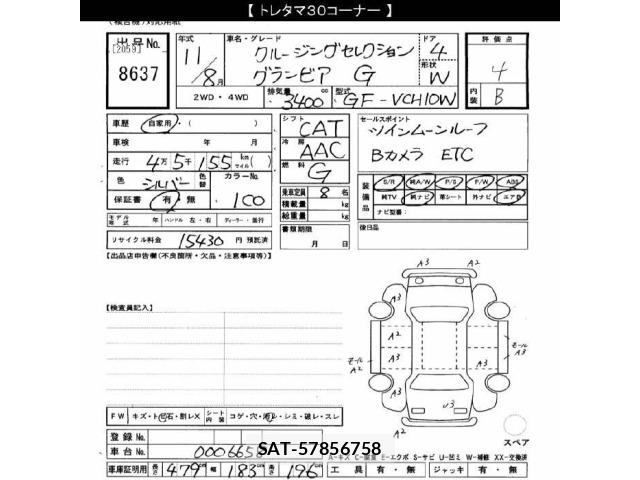 【 トレタマ30コーナー 】
出品No.
[2059]
8637
年式
11/8月
車名・グレード
クルージングセレクション
グランビア G
ドア
4
形状
W
2WD・4WD
排気量
3400 cc
型式
GF-VCH10W
評価点
4
内装
B
車歴
自家用・( )
車検 年 月
走行 4万5千155 km マイル( )
色 シルバー 色替 カラーNo.
100
保証書 有・無
モデル年式 年 ハンドル 左・右 ディーラー・並行
リサイクル料金 15430 円 預託済
シフト CAT
冷房 AAC
燃料 G
乗車定員 8 名
積載量 kg
総重量 kg
書類期限
月 日
セールスポイント
ツインムーンルーフ
Bカメラ ETC
装備品
S/R 純A/W P/S P/W ABS
純TV 純ナビ 革シート 外ナビ エアB
ナビ型番:
後日品
【出品店申告欄(不良箇所・欠品・注意事項等)】
【検査員記入】
A3 A2
A3 A2
A2
A3
モール A2
モール A3
A3 A2
U3
スペア
FW キズ・ト石・割レX シート内張 コゲ・穴・シミ・破レ・スレ
登録No.
車台No. 0006658
SAT-57856758
車庫証明用 長さ 479 cm 幅 183 cm 高さ 196 cm
工具 有・無 ジャッキ 有・無
A-キズ E-エクボ S-サビ U-凹ミ W-補修 XX-交換済